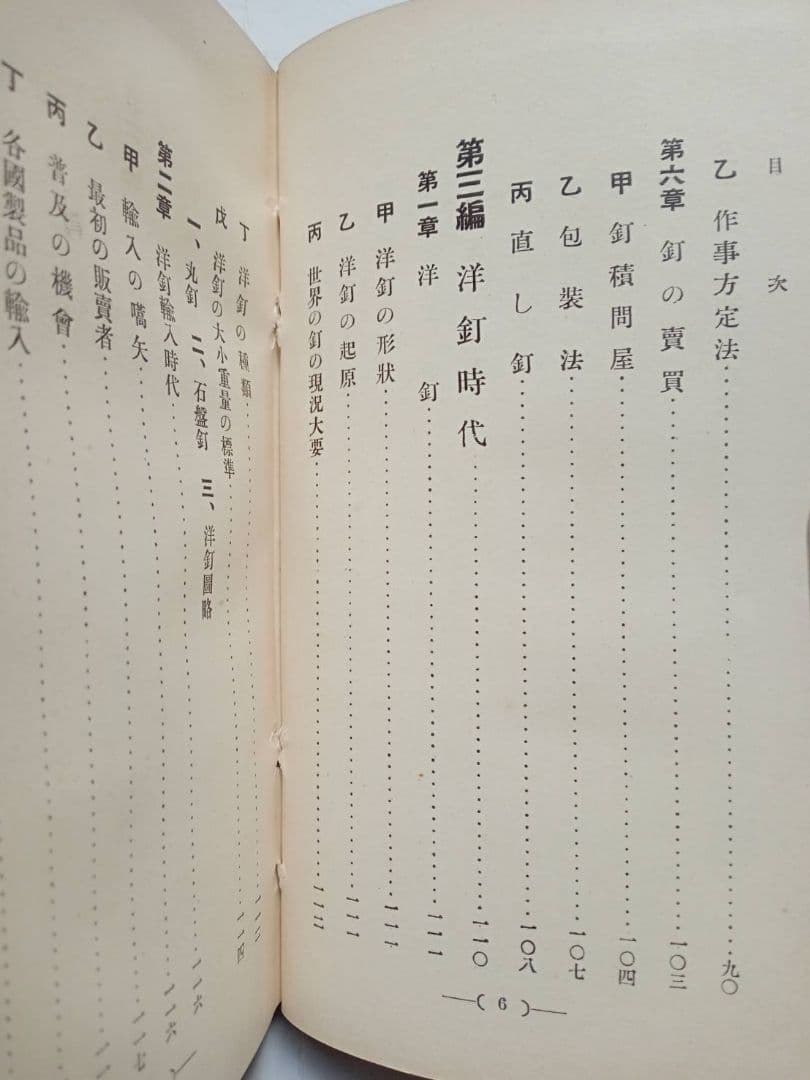 目次
乙 作事方定法……九〇
第六章 釘の賣買……一〇三
甲 釘積問屋……一〇四
乙 包裝法……一〇七
丙 直し釘……一〇八
第三編 洋釘時代……一一〇
第一章 洋釘……一一一
甲 洋釘の形狀……一一一
乙 洋釘の起原……一一一
丙 世界の釘の現況大要……一一二
( 6 )
丁 洋釘の種類……一一三
戊 洋釘の大小重量の標準……一一四
一、丸釘 二、石盤釘 三、洋釘圖略
第二章 洋釘輸入時代……一一六
甲 輸入の嚆矢……一一六
乙 最初の販賣者……一一七
丙 普及の機會……
丁 各國製品の輸入……